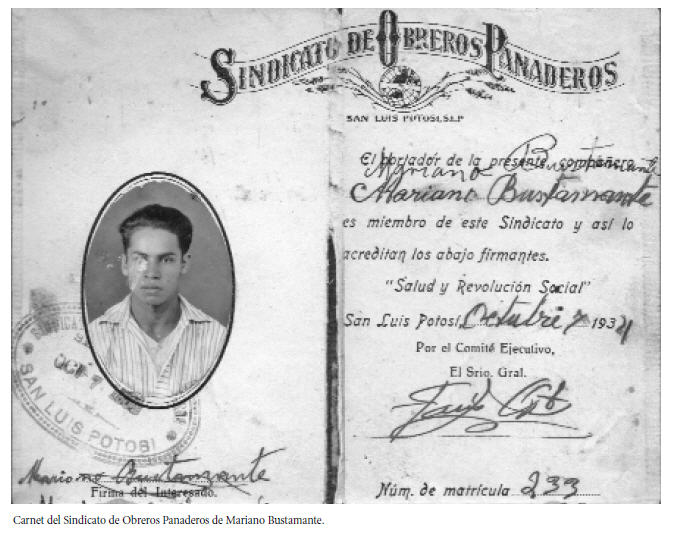 SINDICATO DE OBREROS PANADEROS
SAN LUIS POTOSI, S.L.P.
El portador de la presente, compañero
Mariano Bustamante
Mariano Bustamante
es miembro de este Sindicato y así lo
acreditan los abajo firmantes.
"Salud y Revolución Social"
San Luis Potosí, Octubre 7 1934
Por el Comité Ejecutivo,
El Srio. Gral.
Núm. de matrícula 233
OCT 7
SAN LUIS POTOSI
Mariano Bustamante
Firma del Interesado.
Carnet del Sindicato de Obreros Panaderos de Mariano Bustamante.